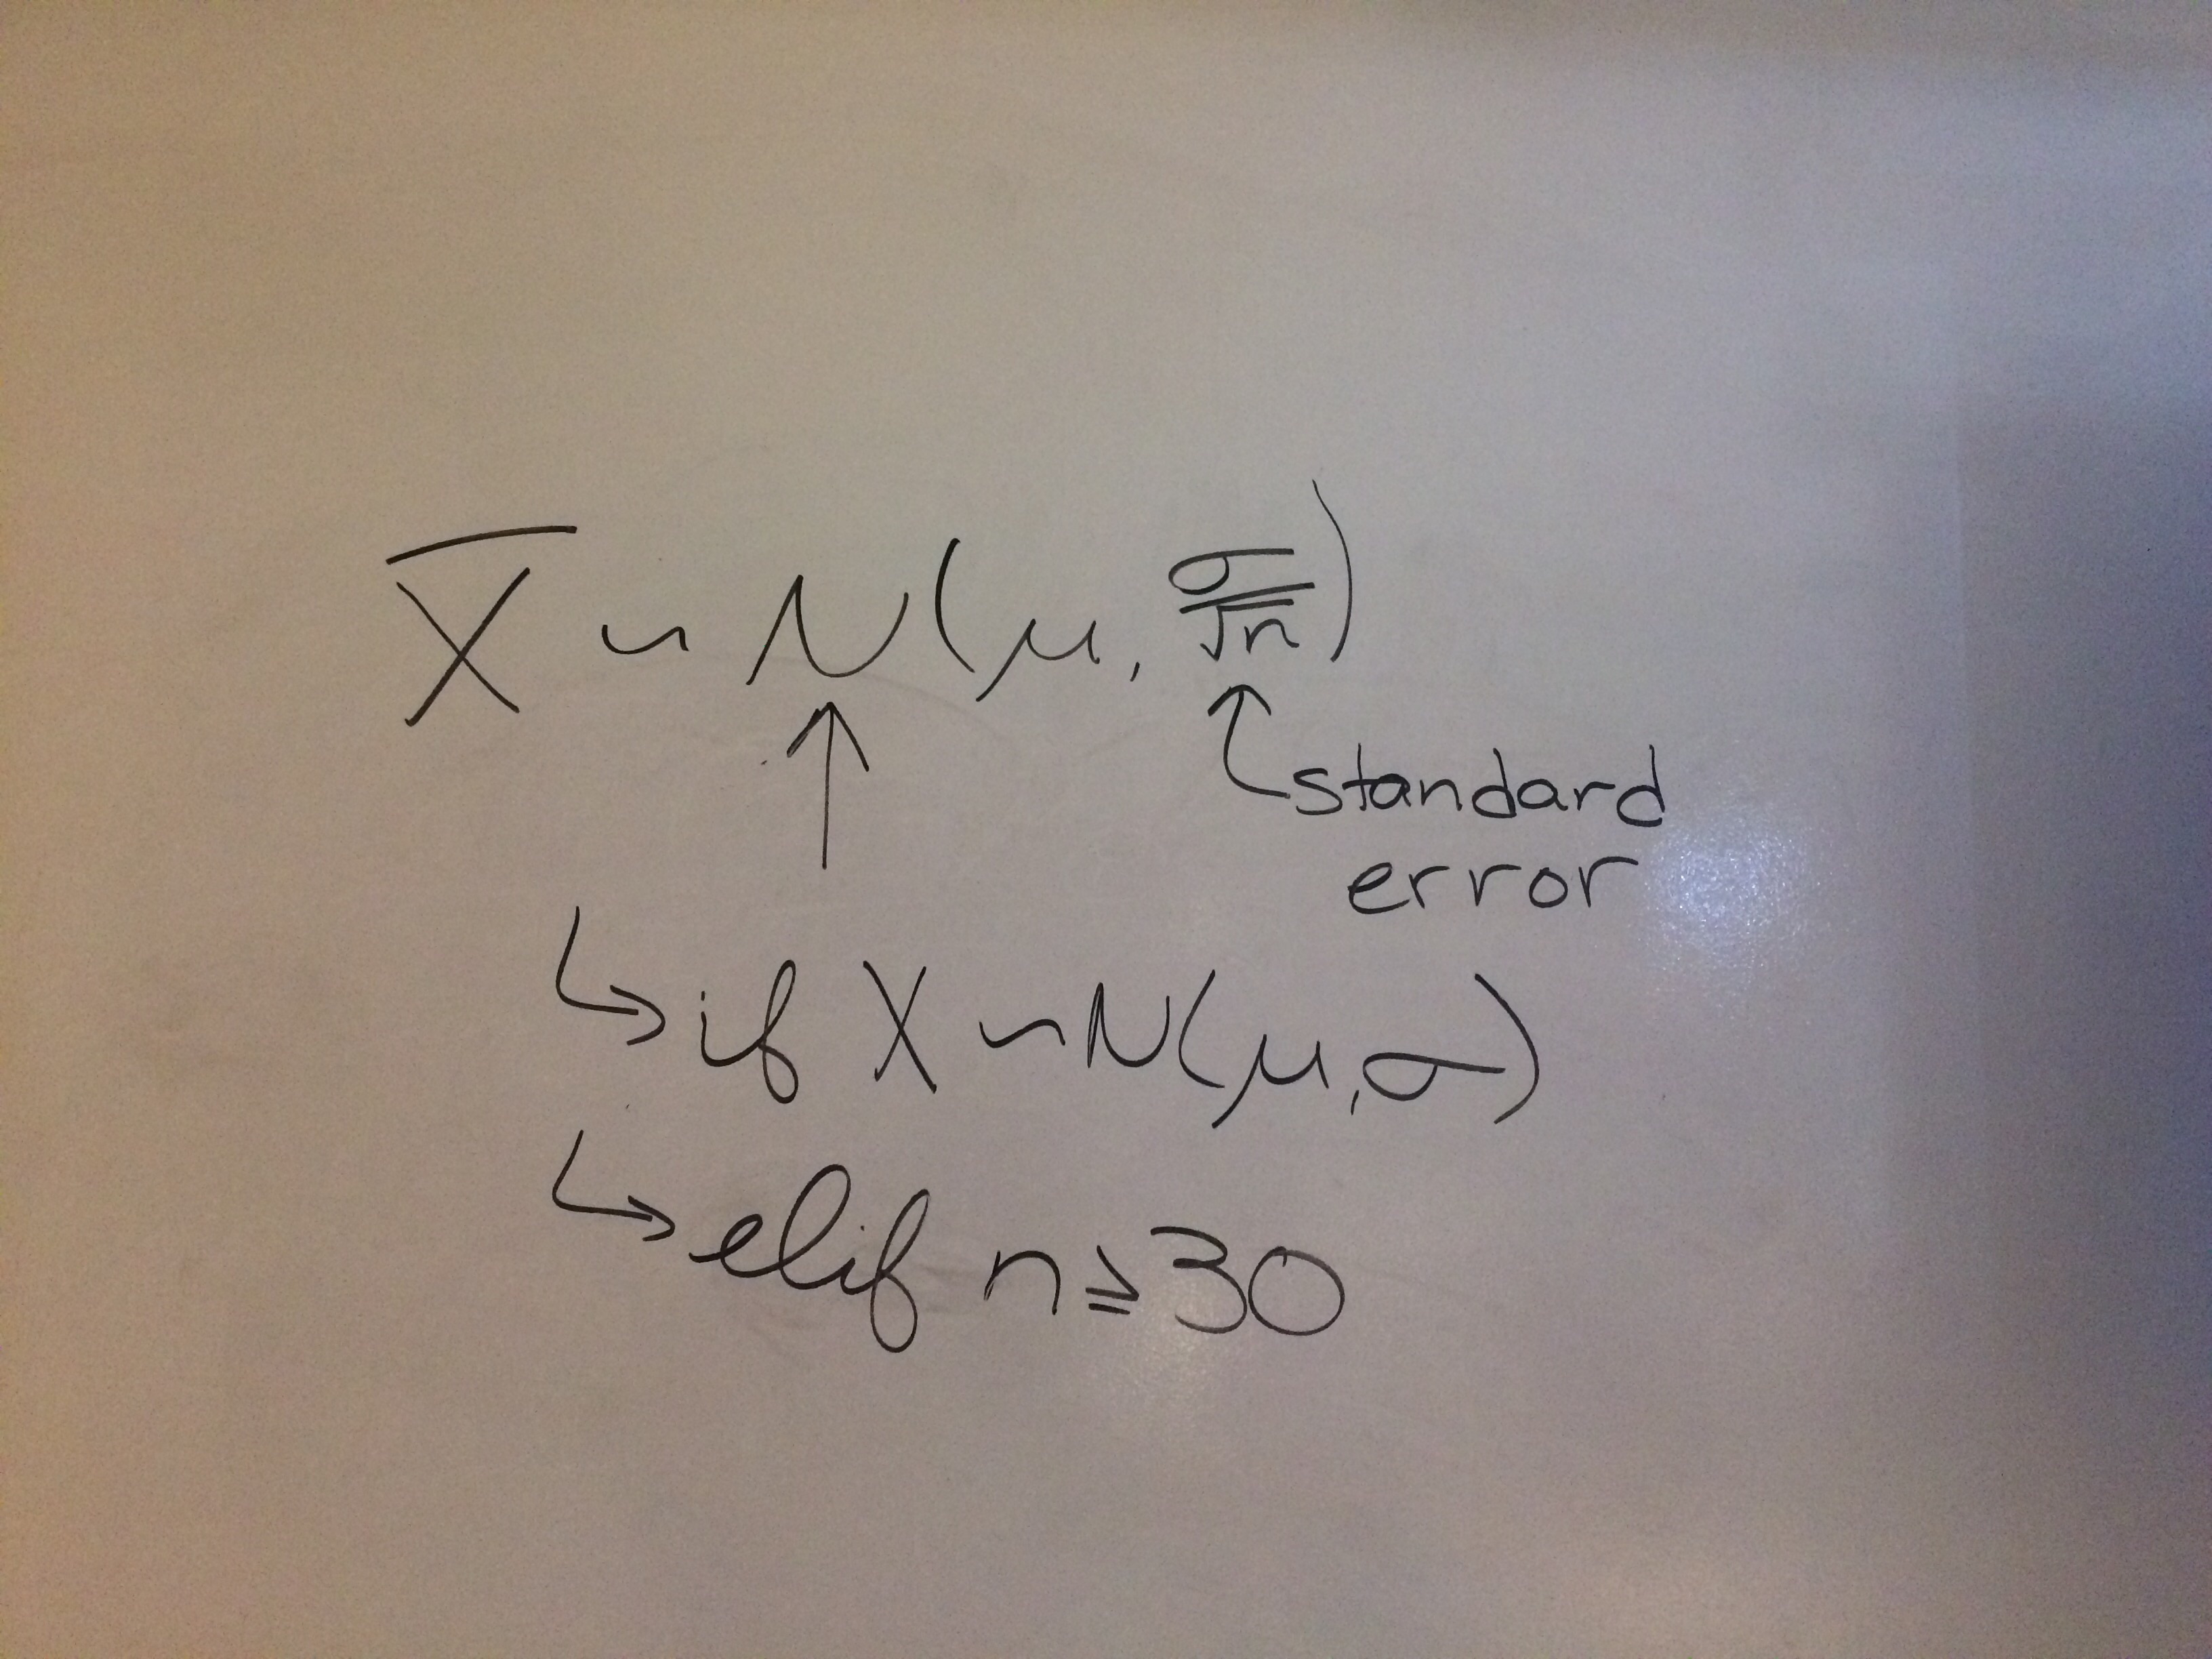 X̄ ~ N(μ, σ/√n)
standard
error
if X ~ N(μ,σ)
elif n ≥ 30